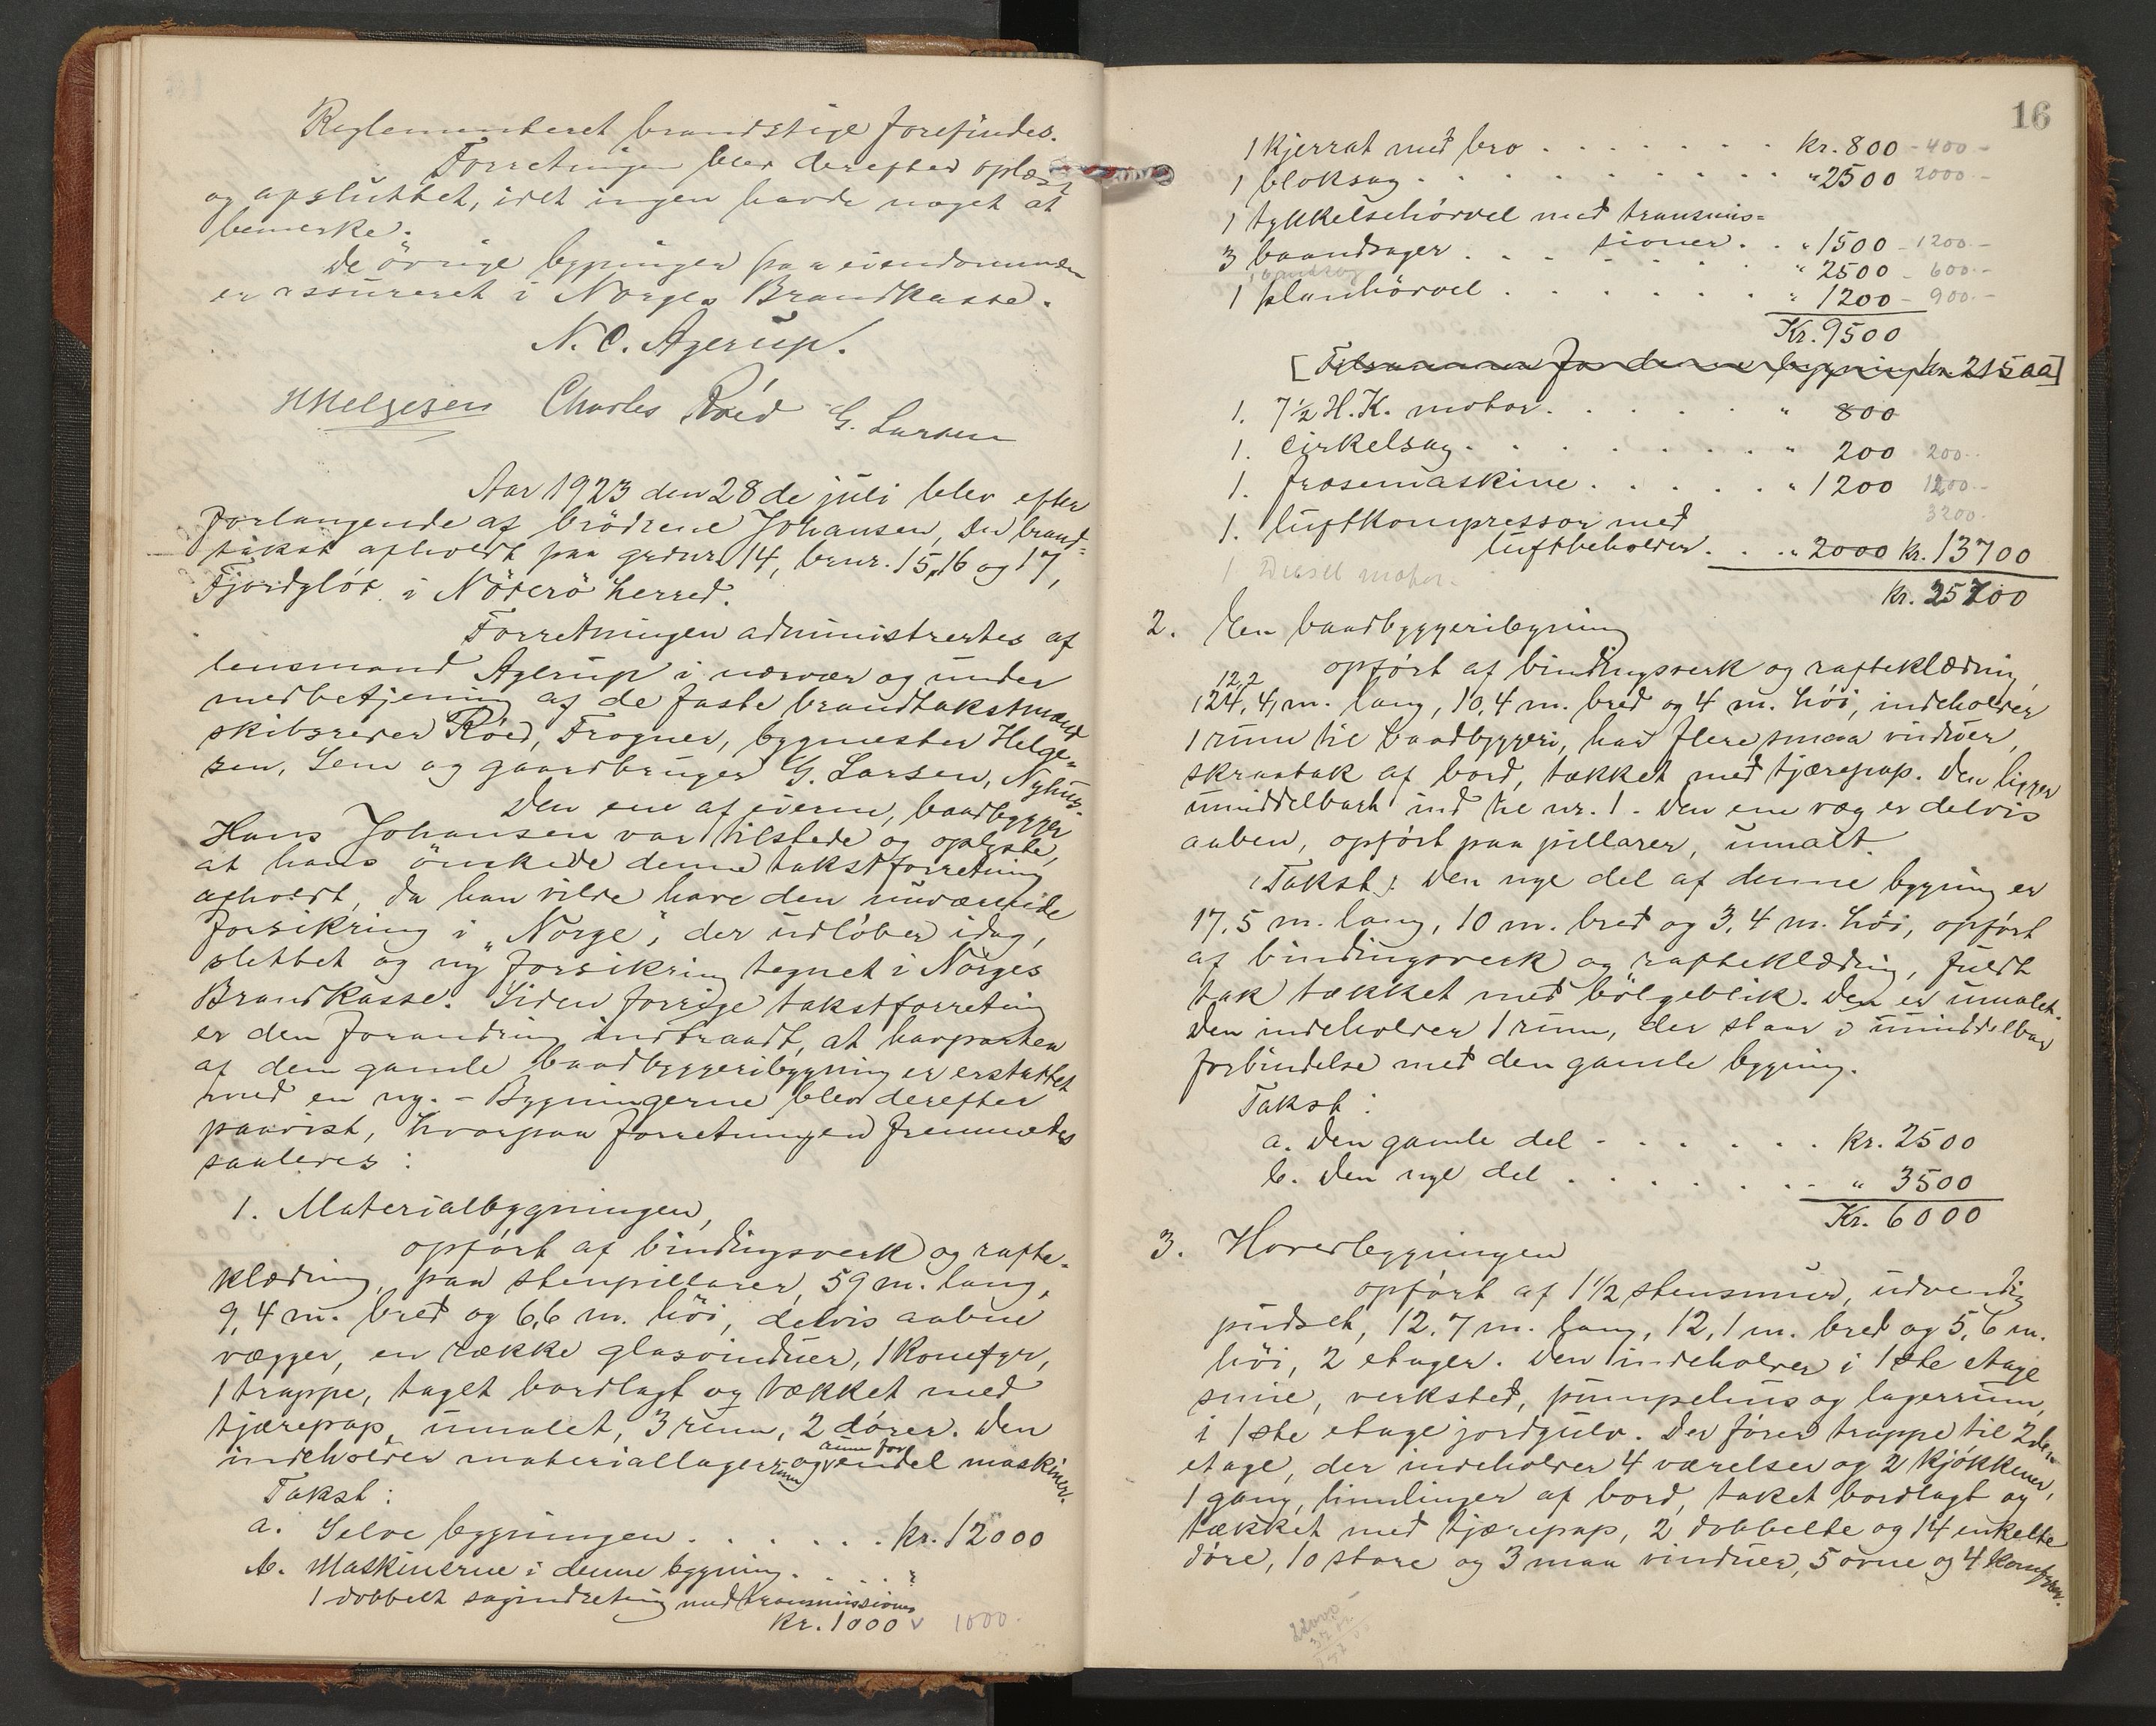 Reglementeret brandstige forefindes.
Forretningen blev derefter oplæst
og afsluttet, idet ingen havde noget at
bemerke.
De övrige bygninger paa eiendommen
er assureret i Norges Brandkasse.
N. C. Agerup.
H Helgesen Charles Röed G. Larsen
Aar 1923 den 28de juli blev efter
forlangende af brödrene Johansen, en brand-
takst afholdt paa grdnr. 14, brnr. 15, 16 og 17,
Fjordgløt i Nöterö herred.
Forretningen administrertes af
lensmand Agerup i nærvær og under
medbetjening af de faste brandtakstmænd
skibsreder Röed, Trogner, bygmester Helge-
sen, Sem og gaardbruger G. Larsen, Nyhus.
Den ene af eierne, baadbygger
Hans Johansen var tilstede og oplyste,
at hans önskede denne takstforretning
afholdt, da han vilde have den nuværende
forsikring i „Norge", der udlöber idag,
slettet og ny forsikring tegnet i Norges
Brandkasse. Siden forrige takstforretning
er den forandring indtraadt, at havparten
af den gamle baadbyggeribygning er erstattet
med en ny. – Bygningerne blev derefter
paavist, hvorpaa forretningen fremmedes
saaledes:
1. Materialbygningen,
opført af bindingsverk og rafte-
klædning, paa stenpillarer, 59 m. lang,
9,4 m. bred og 6,6 m. høi, delvis aabne
vægger, en række glasvinduer, 1 komfyr,
1 trappe, taget bordlagt og tækket med
tjærepap, umalet, 3 rum, 2 dører. Den
indeholder materiallagerrum og rum for endel maskiner.
Takst:
a. Selve bygningen . . . . . . kr. 12000
b. Maskinerne i denne bygning . . . . :
1 dobbelt sagindretning med transmissioner
kr. 1000 v 1000.
16
1 kjerrat med bro . . . . . . . kr. 800 - 400 -
1 bloksag . . . . . . . . . . " 2500 2000 -
1 tykkelsehövvel med transmis=
sioner . . " 1500 - 1200 -
3 baandsager . . . . . . . " 2500 - 600 -
1 planhövvel . . . . . . " 1200 - 900 -
Kr. 9500
[Tilsammen for denne bygning kr. 21500]
1. 7½ H.K. motor . . . . . . " 800
1. Cirkelsag . . . . . . . . " 200 200 -
1. fræsemaskine . . . . . . " 1200 1200 -
3200 -
1. luftkompressor med
luftbeholder . . . " 2000 kr. 13700
1 Diesel motor.
kr. 25700
2. En baadbyggeribygning
opført af bindingsverk og rafteklædning,
12,2
24,4 m. lang, 10,4 m. bred og 4 m. høi, indeholder
1 rum til baadbyggeri, har flere smaa vinduer,
skraatak af bord, tækket med tjærepap. Den ligger
umiddelbart ind til nr. 1. Den ene væg er delvis
aaben, opført paa pillarer, umalt.
(Takst): Den nye del af denne bygning er
17,5 m. lang, 10 m. bred og 3,4 m. høi, opført
af bindingsverk og rafteklædning, fuldt
tak tækket med bölgeblik. Den er umalet.
Den indeholder 1 rum, der staar i umiddelbar
forbindelse med den gamle bygning.
Takst:
a. Den gamle del . . . . . . kr. 2500
b. Den nye del . . . . . . . " 3500
Kr. 6000
3. Hovedbygningen
opført af 1½ stensmur, udvendig
pudset, 12,7 m. lang, 12,1 m. bred og 5,6 m.
høi, 2 etager. Den indeholder i 1ste etage
smie, verksted, pumpehus og lagerrum,
i 1ste etage jordgulv. Der fører trappe til 2den
etage, der indeholder 4 værelser og 2 kjøkkener,
1 gang, himlinger af bord, taket bordlagt og
tækket med tjærepap, 2 dobbelte og 14 enkelte
døre, 10 store og 3 smaa vinduer, 5 ovne og 4 komfyrer.